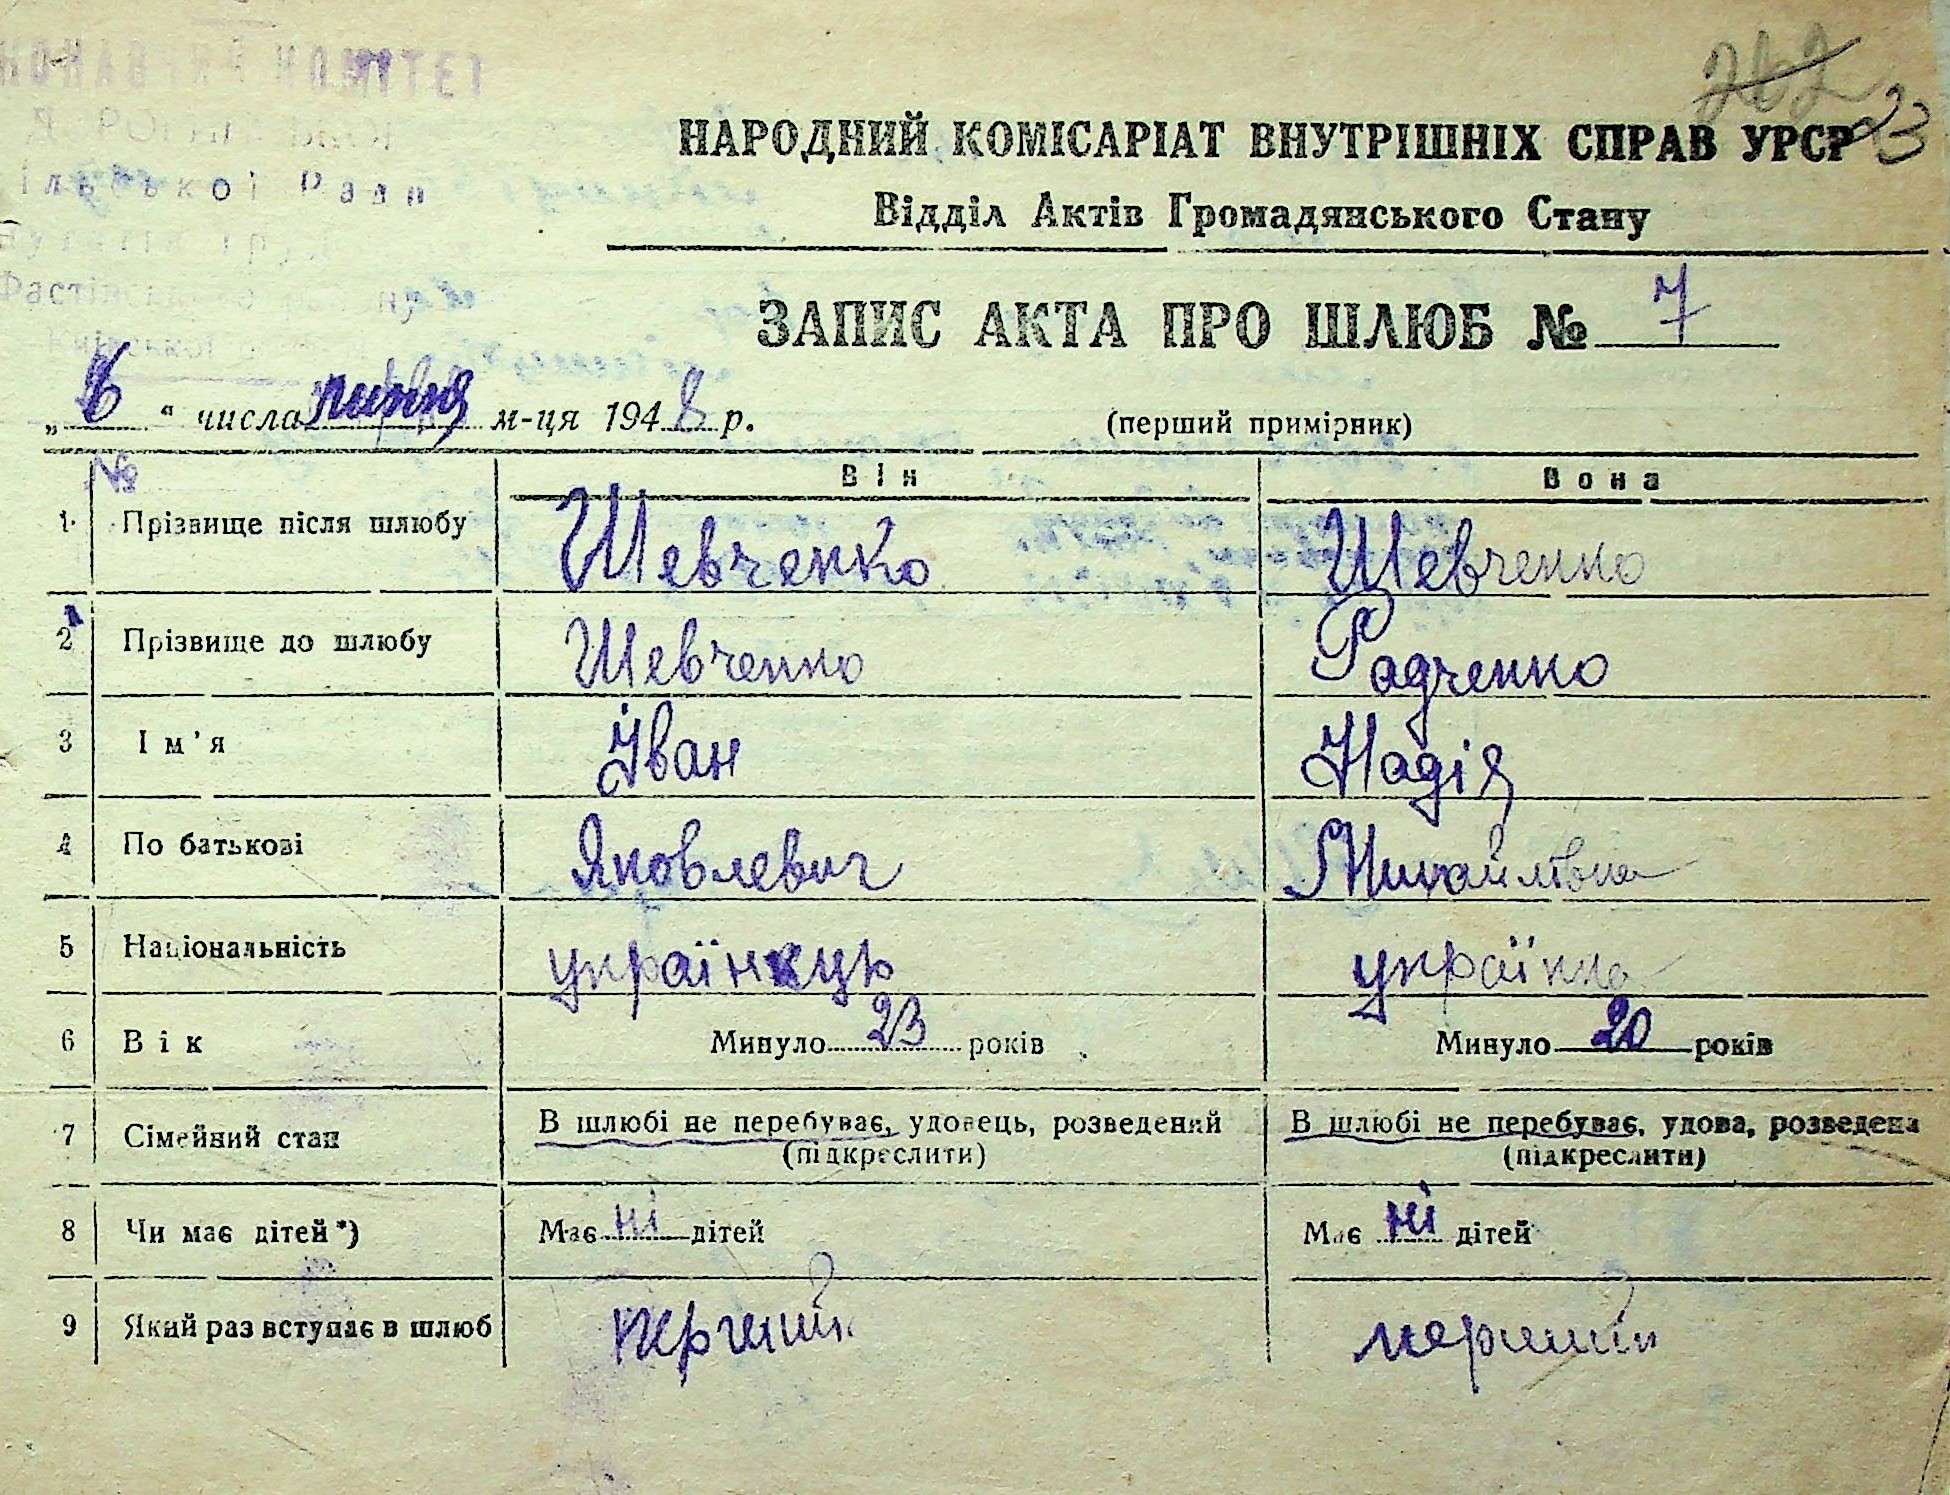 262 23
КОМІТЕТ
ської Ради
НАРОДНИЙ КОМІСАРІАТ ВНУТРІШНІХ СПРАВ УРСР
Відділ Актів Громадянського Стану
ЗАПИС АКТА ПРО ШЛЮБ № 7
„6“ числа липня м-ця 1948 р. (перший примірник)
№ Він Вона
1 Прізвище після шлюбу Шевченко Шевченко
2 Прізвище до шлюбу Шевченко Радченко
3 Ім'я Іван Надія
4 По батькові Яковлевич Михайлівна
5 Національність українець українка
6 Вік Минуло 23 років Минуло 20 років
7 Сімейний стан В шлюбі не перебуває, удовець, розведений В шлюбі не перебуває, удова, розведена
(підкреслити) (підкреслити)
8 Чи має дітей*) Має ні дітей Має ні дітей
9 Який раз вступає в шлюб перший перший